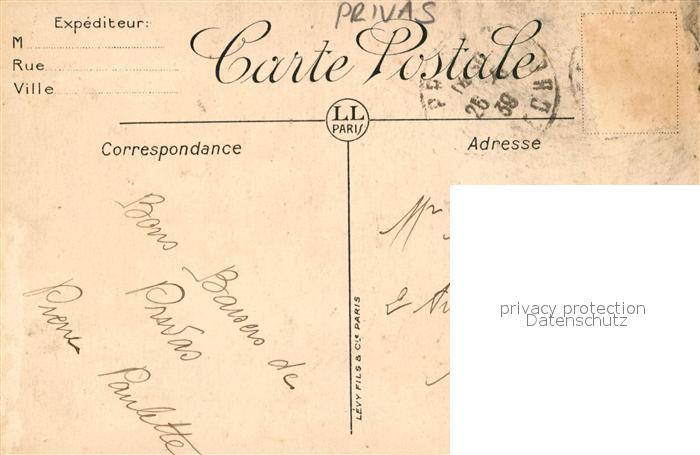 PRIVAS
Expéditeur:
M
Rue
Ville
Carte Postale
26
38
LL
PARIS
Correspondance
Adresse
Bons
Baisers de
Privas
Pierre
Paulette
Mr
2
LÉVY FILS & Cie PARIS
privacy protection
Datenschutz